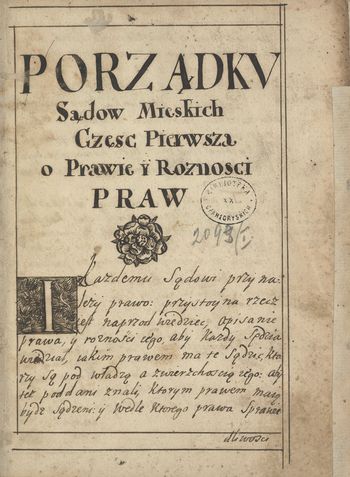 PORZĄDKV
Sądow Mieskich
Czesc Pierwsza
o Prawie ÿ Roznosci
PRAW
BIBLIOTEKA
XX.
CZARTORYSKICH
2093/I
Kazdemu Sądowi przyna:
lezy prawo: przystoyna rzecz
iest naprzod wiedziec, opisanie
prawa, y roznosci iego, aby kazdy Sędzia
wiedział, iakim prawem ma te Sądzic, kto
rzy Są pod władzą a zwierzchoscią iego: aby
tez poddani znali, ktorym prawem maią
bydz Sądzeni: y wedle ktorego prawa Sprawie
dliwosci